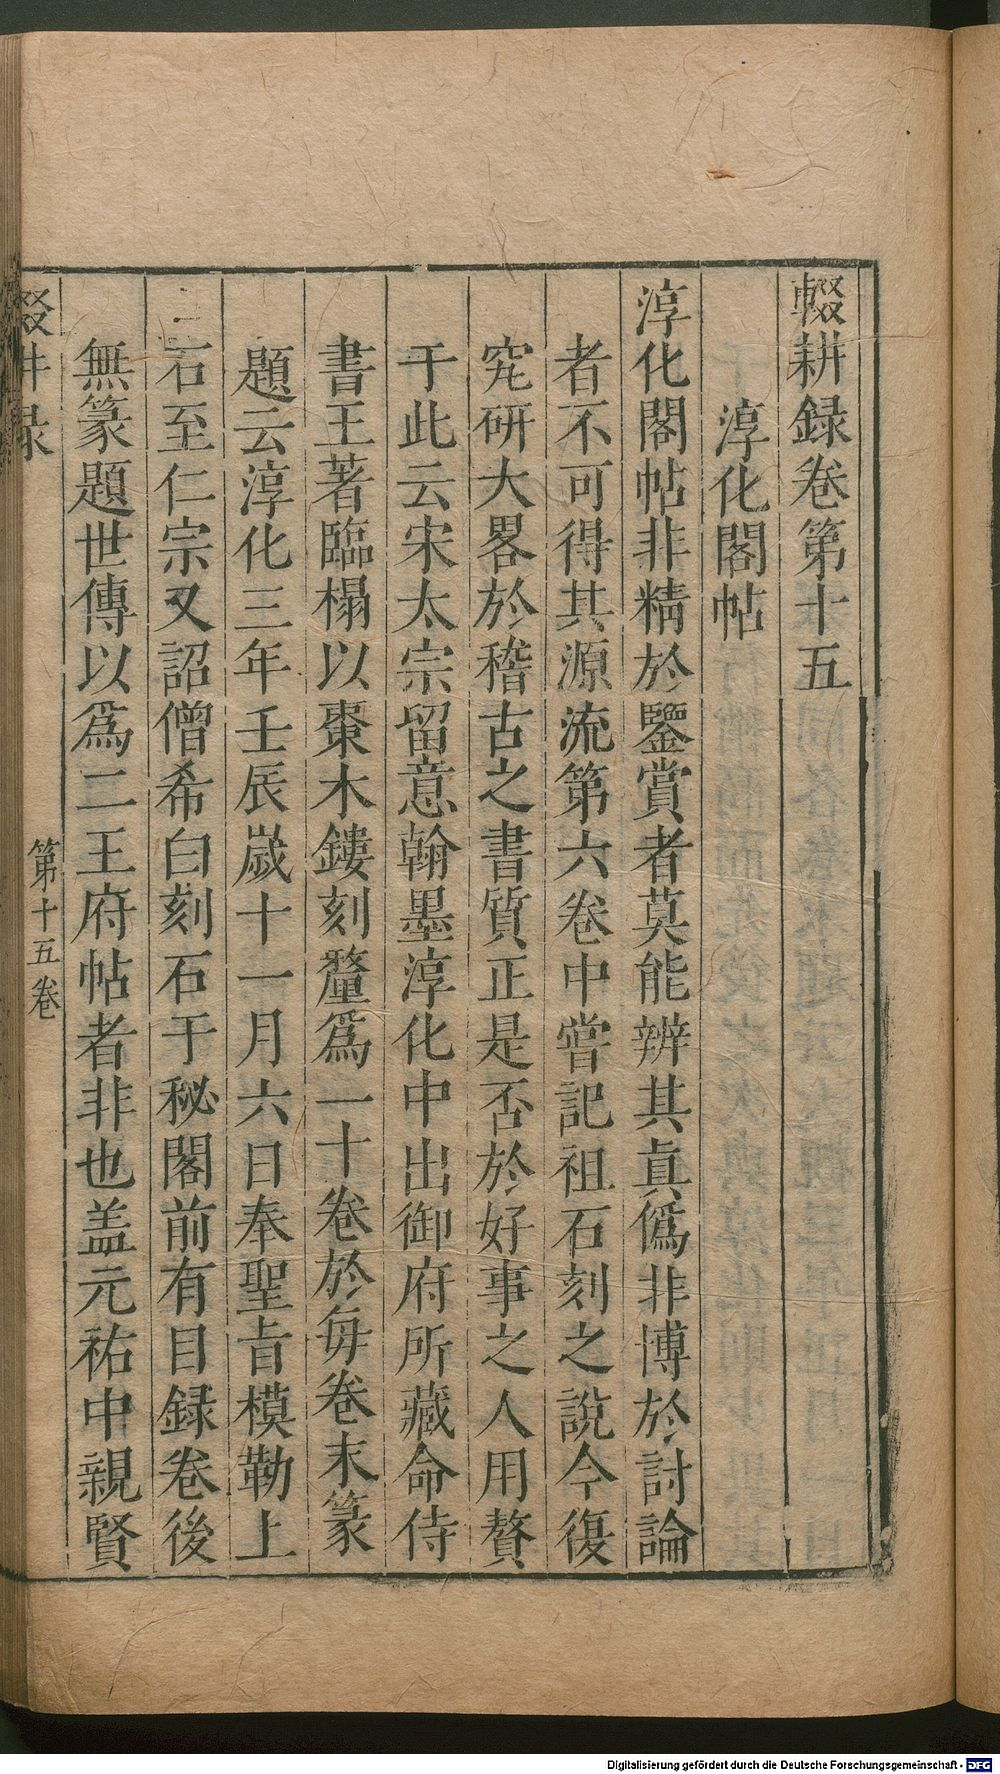 輟耕録卷第十五
淳化閣帖
淳化閣帖非精於鑒賞者莫能辨其眞僞非博於討論
者不可得其源流第六卷中嘗記祖石刻之說今復
究研大畧於稽古之書質正是否於好事之人用贅
于此云宋太宗留意翰墨淳化中出御府所藏命侍
書王著臨榻以棗木鏤刻釐爲一十卷於每卷末篆
題云淳化三年壬辰歲十一月六日奉聖旨模勒上
石至仁宗又詔僧希白刻石于秘閣前有目録卷後
無篆題世傳以爲二王府帖者非也盖元祐中親賢
第十五卷
Digitalisierung gefördert durch die Deutsche Forschungsgemeinschaft - DFG